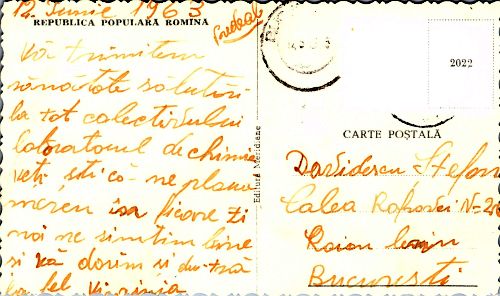 12 Iunie 1963
REPUBLICA POPULARĂ ROMÎNĂ
Predeal
Vă trimitem
sănătate salutări
la tot colectivului
laboratorul de chimie
veți ști că ne plouă
mereu în fiecare zi
noi ne simțim bine
și vă dorim și dvs-tră
la fel Virginia
Editura Meridiane
2022
CARTE POȘTALĂ
Davidescu Ștefan
Calea Rahovei N=
Raion Lenin
București